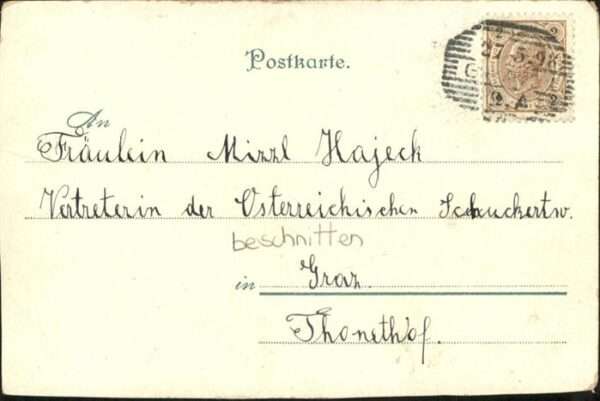 Postkarte.
2 2
27.5.98
G
2. A. 2
An
Fräulein Mizzl Hajeck
Vertreterin der Österreichischen Schuckertw.
beschnitten
in Graz.
Thonethof.